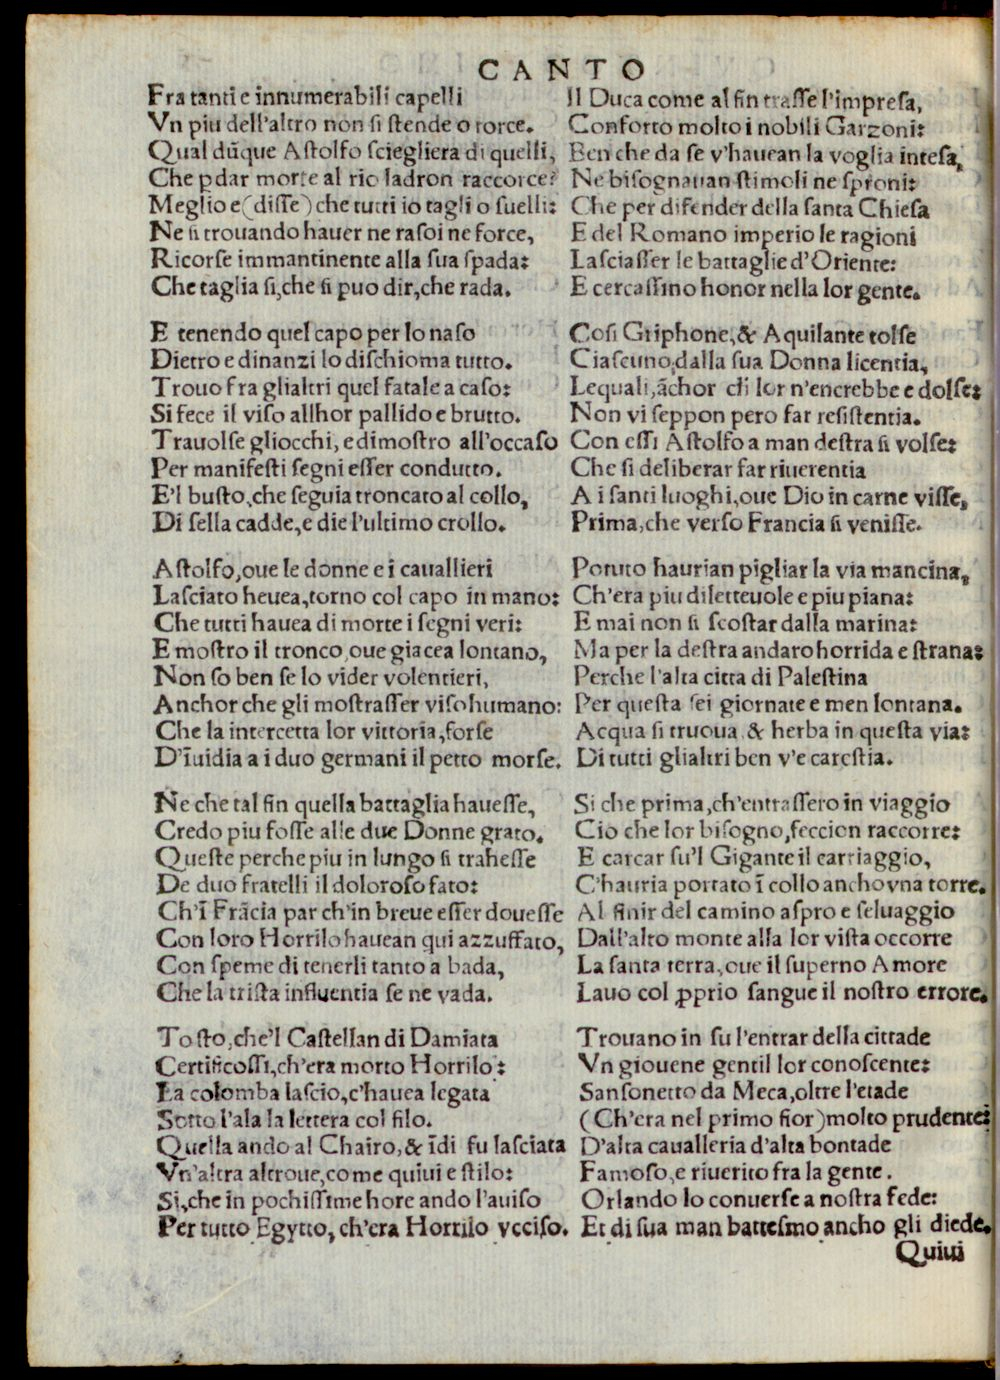 CANTO
Fra tanti e innumerabili capelli
Vn piu dell'altro non si stende o torce.
Qual dūque Astolfo sciegliera di quelli,
Che ꝑ dar morte al rio ladron raccorce?
Meglio e (disse) che tutti io tagli o suelli:
Ne si trouando hauer ne rasoi ne force,
Ricorse immantinente alla sua spada:
Che taglia si, che si puo dir, che rada.
E tenendo quel capo per lo naso
Dietro e dinanzi lo dischioma tutto.
Trouo fra glialtri quel fatale a caso:
Si fece il viso allhor pallido e brutto.
Trauolse gliocchi, e dimostro all'occaso
Per manifesti segni esser condutto.
E'l busto, che seguia troncato al collo,
Di sella cadde, e die l'ultimo crollo.
Astolfo, oue le donne e i cauallieri
Lasciato heuea, torno col capo in mano:
Che tutti hauea di morte i segni veri:
E mostro il tronco, oue giacea lontano,
Non so ben se lo vider volentieri,
Anchor che gli mostrasser viso humano:
Che la intercetta lor vittoria, forse
D'īuidia a i duo germani il petto morse.
Ne che tal fin quella battaglia hauesse,
Credo piu fosse alle due Donne grato.
Queste perche piu in lungo si trahesse
De duo fratelli il doloroso fato:
Ch'ī Frācia par ch'in breue esser douesse
Con loro Horrilo hauean qui azzuffato,
Con speme di tenerli tanto a bada,
Che la trista influentia se ne vada.
Tosto, che'l Castellan di Damiata
Certificossi, ch'era morto Horrilo:
La colomba lascio, c'hauea legata
Sotto l'ala la lettera col filo.
Quella ando al Chairo, & īdi fu lasciata
Vn'altra altroue, come quiui e stilo:
Si, che in pochissime hore ando l'auiso
Per tutto Egytto, ch'era Horrilo vcciso.
Il Duca come al fin trasse l'impresa,
Conforto molto i nobili Garzoni:
Ben che da se v'hauean la voglia intesa,
Ne bisognauan stimoli ne sproni:
Che per difender della santa Chiesa
E del Romano imperio le ragioni
Lasciasser le battaglie d'Oriente:
E cercassino honor nella lor gente.
Cosi Griphone, & Aquilante tolse
Ciascuno, dalla sua Donna licentia,
Lequali, āchor di lor n'encrebbe e dolse:
Non vi seppon pero far resistentia.
Con essi Astolfo a man destra si volse:
Che si deliberar far riuerentia
A i santi luoghi, oue Dio in carne visse,
Prima, che verso Francia si venisse.
Potuto haurian pigliar la via mancina,
Ch'era piu diletteuole e piu piana:
E mai non si scostar dalla marina:
Ma per la destra andaro horrida e strana:
Perche l'alta citta di Palestina
Per questa sei giornate e men lontana.
Acqua si truoua & herba in questa via:
Di tutti glialtri ben v'e carestia.
Si che prima, ch'entrassero in viaggio
Cio che lor bisogno, feccion raccorre:
E carcar su'l Gigante il carriaggio,
C'hauria portato ī collo ancho vna torre.
Al finir del camino aspro e seluaggio
Dall'alto monte alla lor vista occorre
La santa terra, oue il superno Amore
Lauo col ꝓprio sangue il nostro errore.
Trouano in su l'entrar della cittade
Vn giouene gentil lor conoscente:
Sansonetto da Meca, oltre l'etade
(Ch'era nel primo fior) molto prudente:
D'alta caualleria d'alta bontade
Famoso, e riuerito fra la gente.
Orlando lo conuerse a nostra fede:
Et di sua man battesmo ancho gli diede.
Quiui